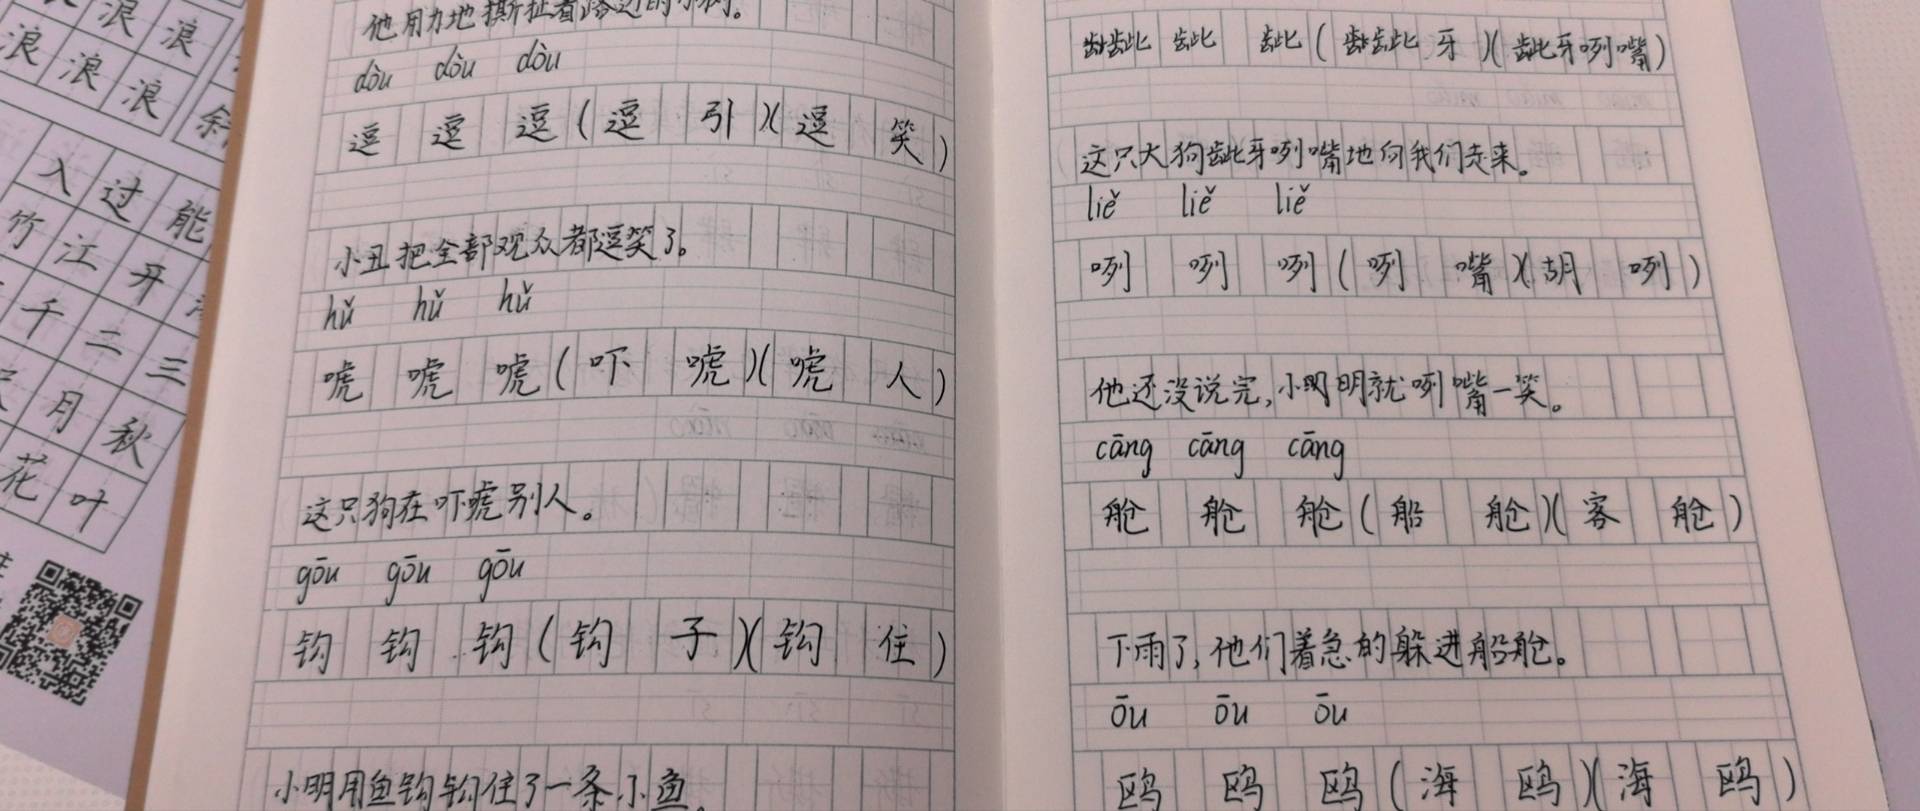 浪 浪
浪 浪 浪
余
入 过 能
竹 江 开
千 二 三
月 秋
花 叶
他用力地撕扯着路边的小树。
dòu dòu dòu
逗 逗 逗(逗 引)(逗 笑)
小丑把全部观众都逗笑了。
hǔ hǔ hǔ
唬 唬 唬(吓 唬)(唬 人)
这只狗在吓唬别人。
gōu gōu gōu
钩 钩 钩(钩 子)(钩 住)
小明用鱼钩钩住了一条小鱼。
龇 龇 龇(龇 牙)(龇牙咧嘴)
这只大狗龇牙咧嘴地向我们走来。
liě liě liě
咧 咧 咧(咧 嘴)(胡 咧)
他还没说完,小明明就咧嘴一笑。
cāng cāng cāng
舱 舱 舱(船 舱)(客 舱)
下雨了,他们着急的躲进船舱。
ōu ōu ōu
鸥 鸥 鸥(海 鸥)(海 鸥)